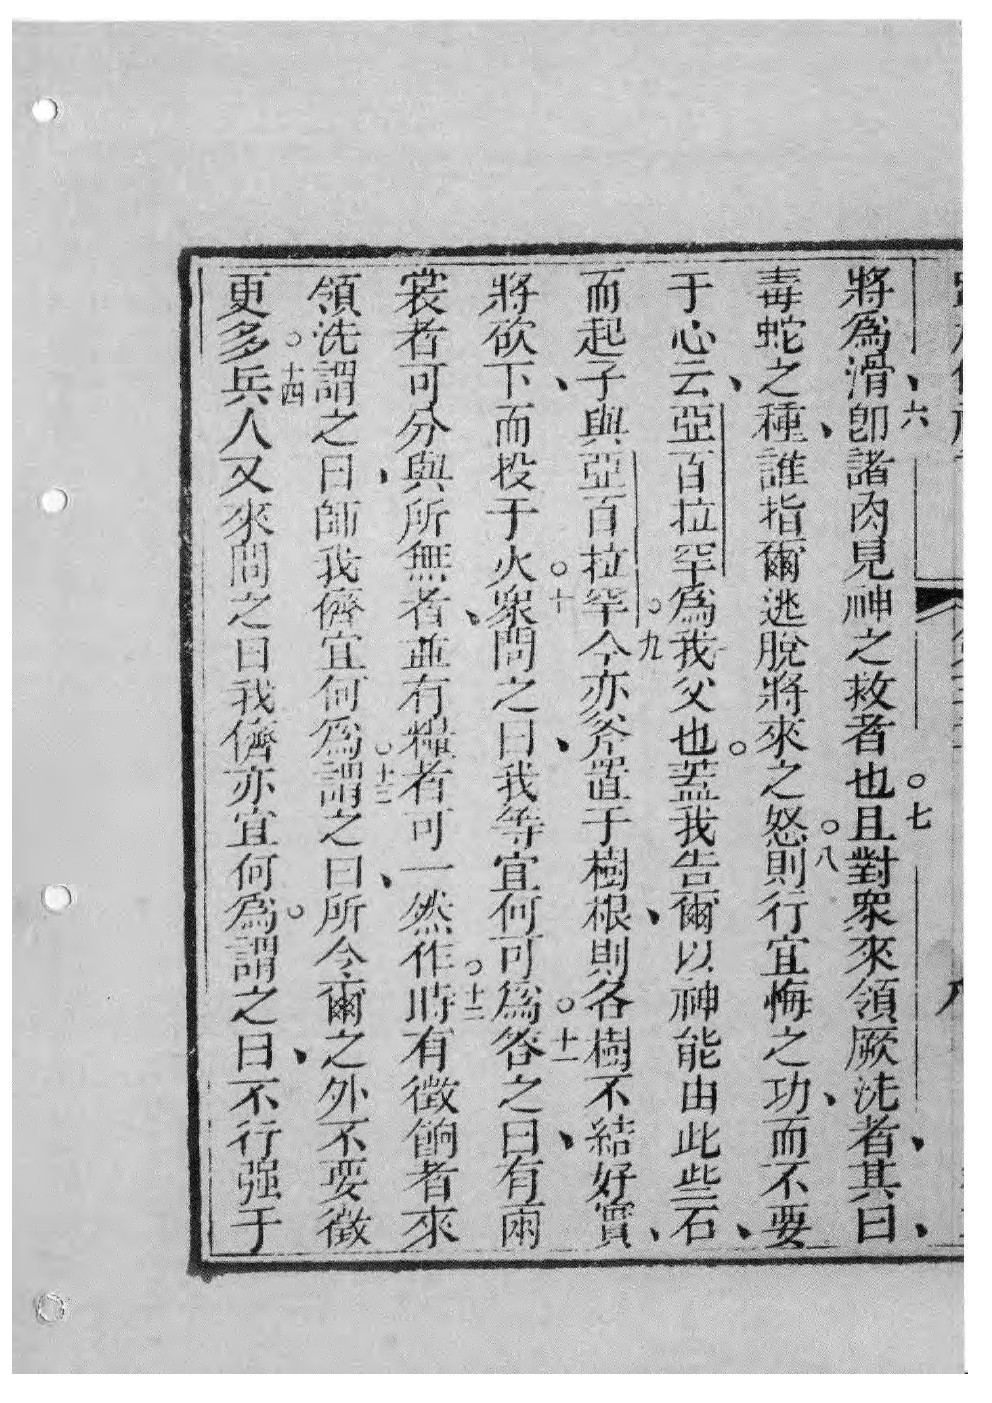 將為滑、六即諸肉見神之救者也。七且對眾來領厥洗者、其曰、
毒蛇之種、誰指爾逃脫將來之怒。八則行宜悔之功、而不要
于心云、亞百拉罕為我父也。蓋我告爾以神能由此些石、
而起子與亞百拉罕。九今亦斧置于樹根、則各樹不結好實、
將砍下、而投于火。十眾問之曰、我等宜何可為。十一答之曰、有兩
裳者可分與所無者、並有糧者可一然。十二作時有徵餉者來
領洗謂之曰、師我儕宜何為。十三謂之曰、所令爾之外不要徵
更多。十四兵人又來問之曰我儕亦宜何為。謂之曰、不行强于